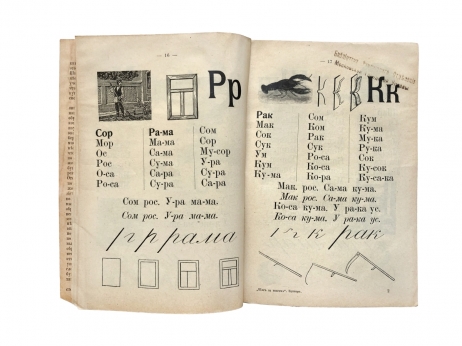 — 16 —
Рр
Сор Ра-ма Сом
Мор Ма-ма Сор
Ос Са-ма Му-сор
Рос Су-ма У-ра
О-са Са-ра Су-ра
Ро-са Су-ра Са-ра
Сом рос. У-ра ма-ма.
Сом рос. У-ра ма-ма.
р р рама
17
Кк
Рак Сом Кум
Мак Ком Ку-ма
Сок Рак Му-ка
Сук Ро-са Ру-ка
Ум Ко-са Су-ка
Кум Ку-ма Ку-сок
Ку-ма Ко-ра Ку-са-ка
Мак рос. Са-ма ку-ма.
Мак рос. Са-ма ку-ма.
Ко-са ку-ма. У ра-ка ус.
Ко-са ку-ма. У ра-ка ус.
к к рак
2